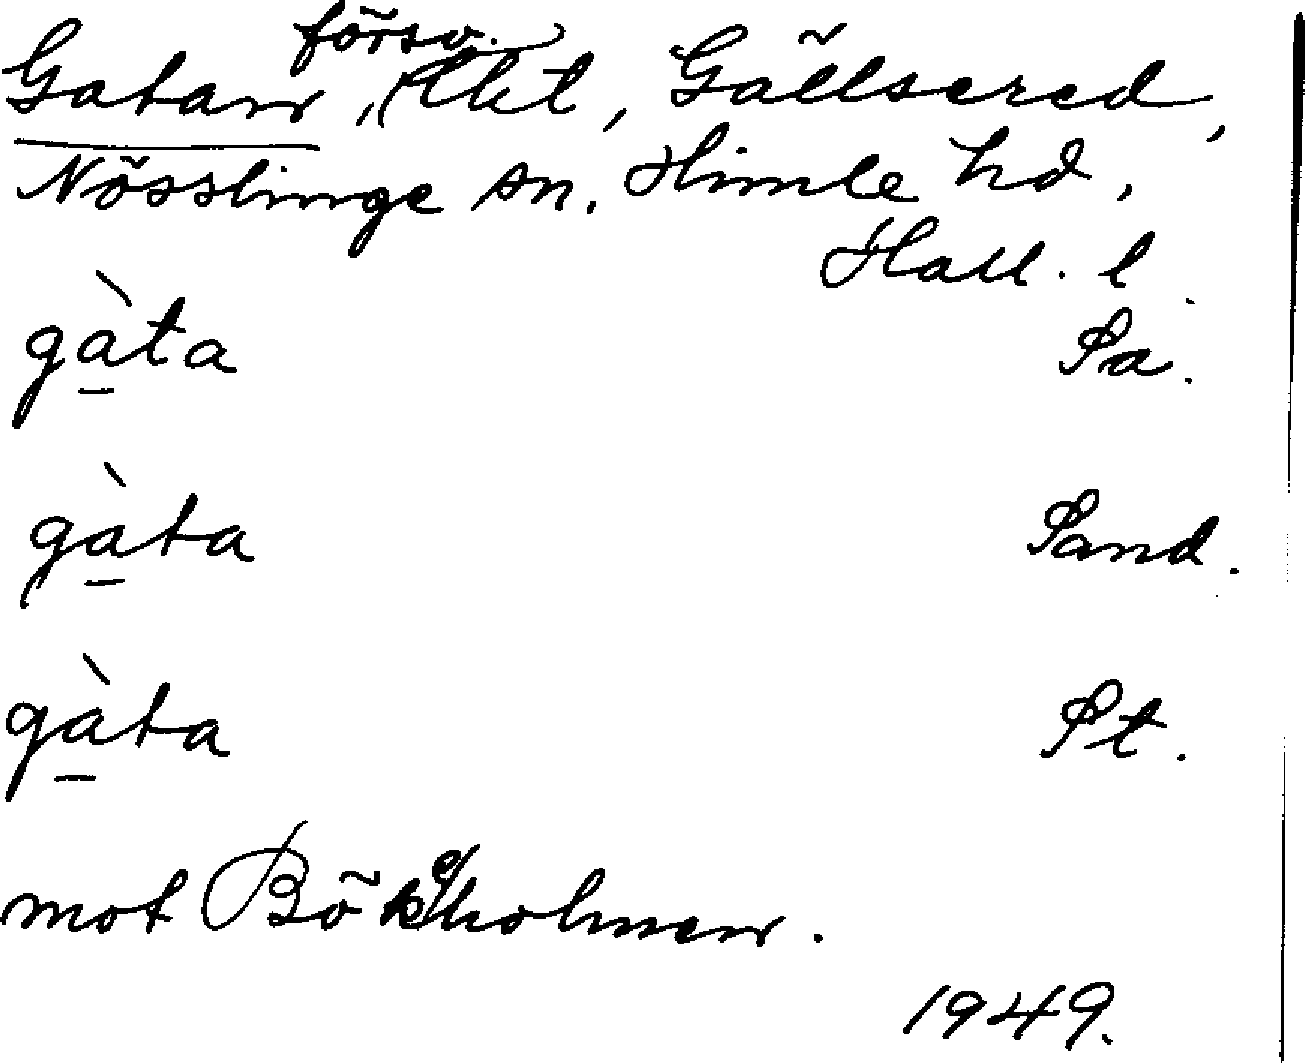 Gatan, försv. lht, Gällsered,
Nösslinge sn. Himle hd,
Hall. l.
gàta Sa.
gàta Sand.
gàta St.
mot Bökeholmen.
1949.